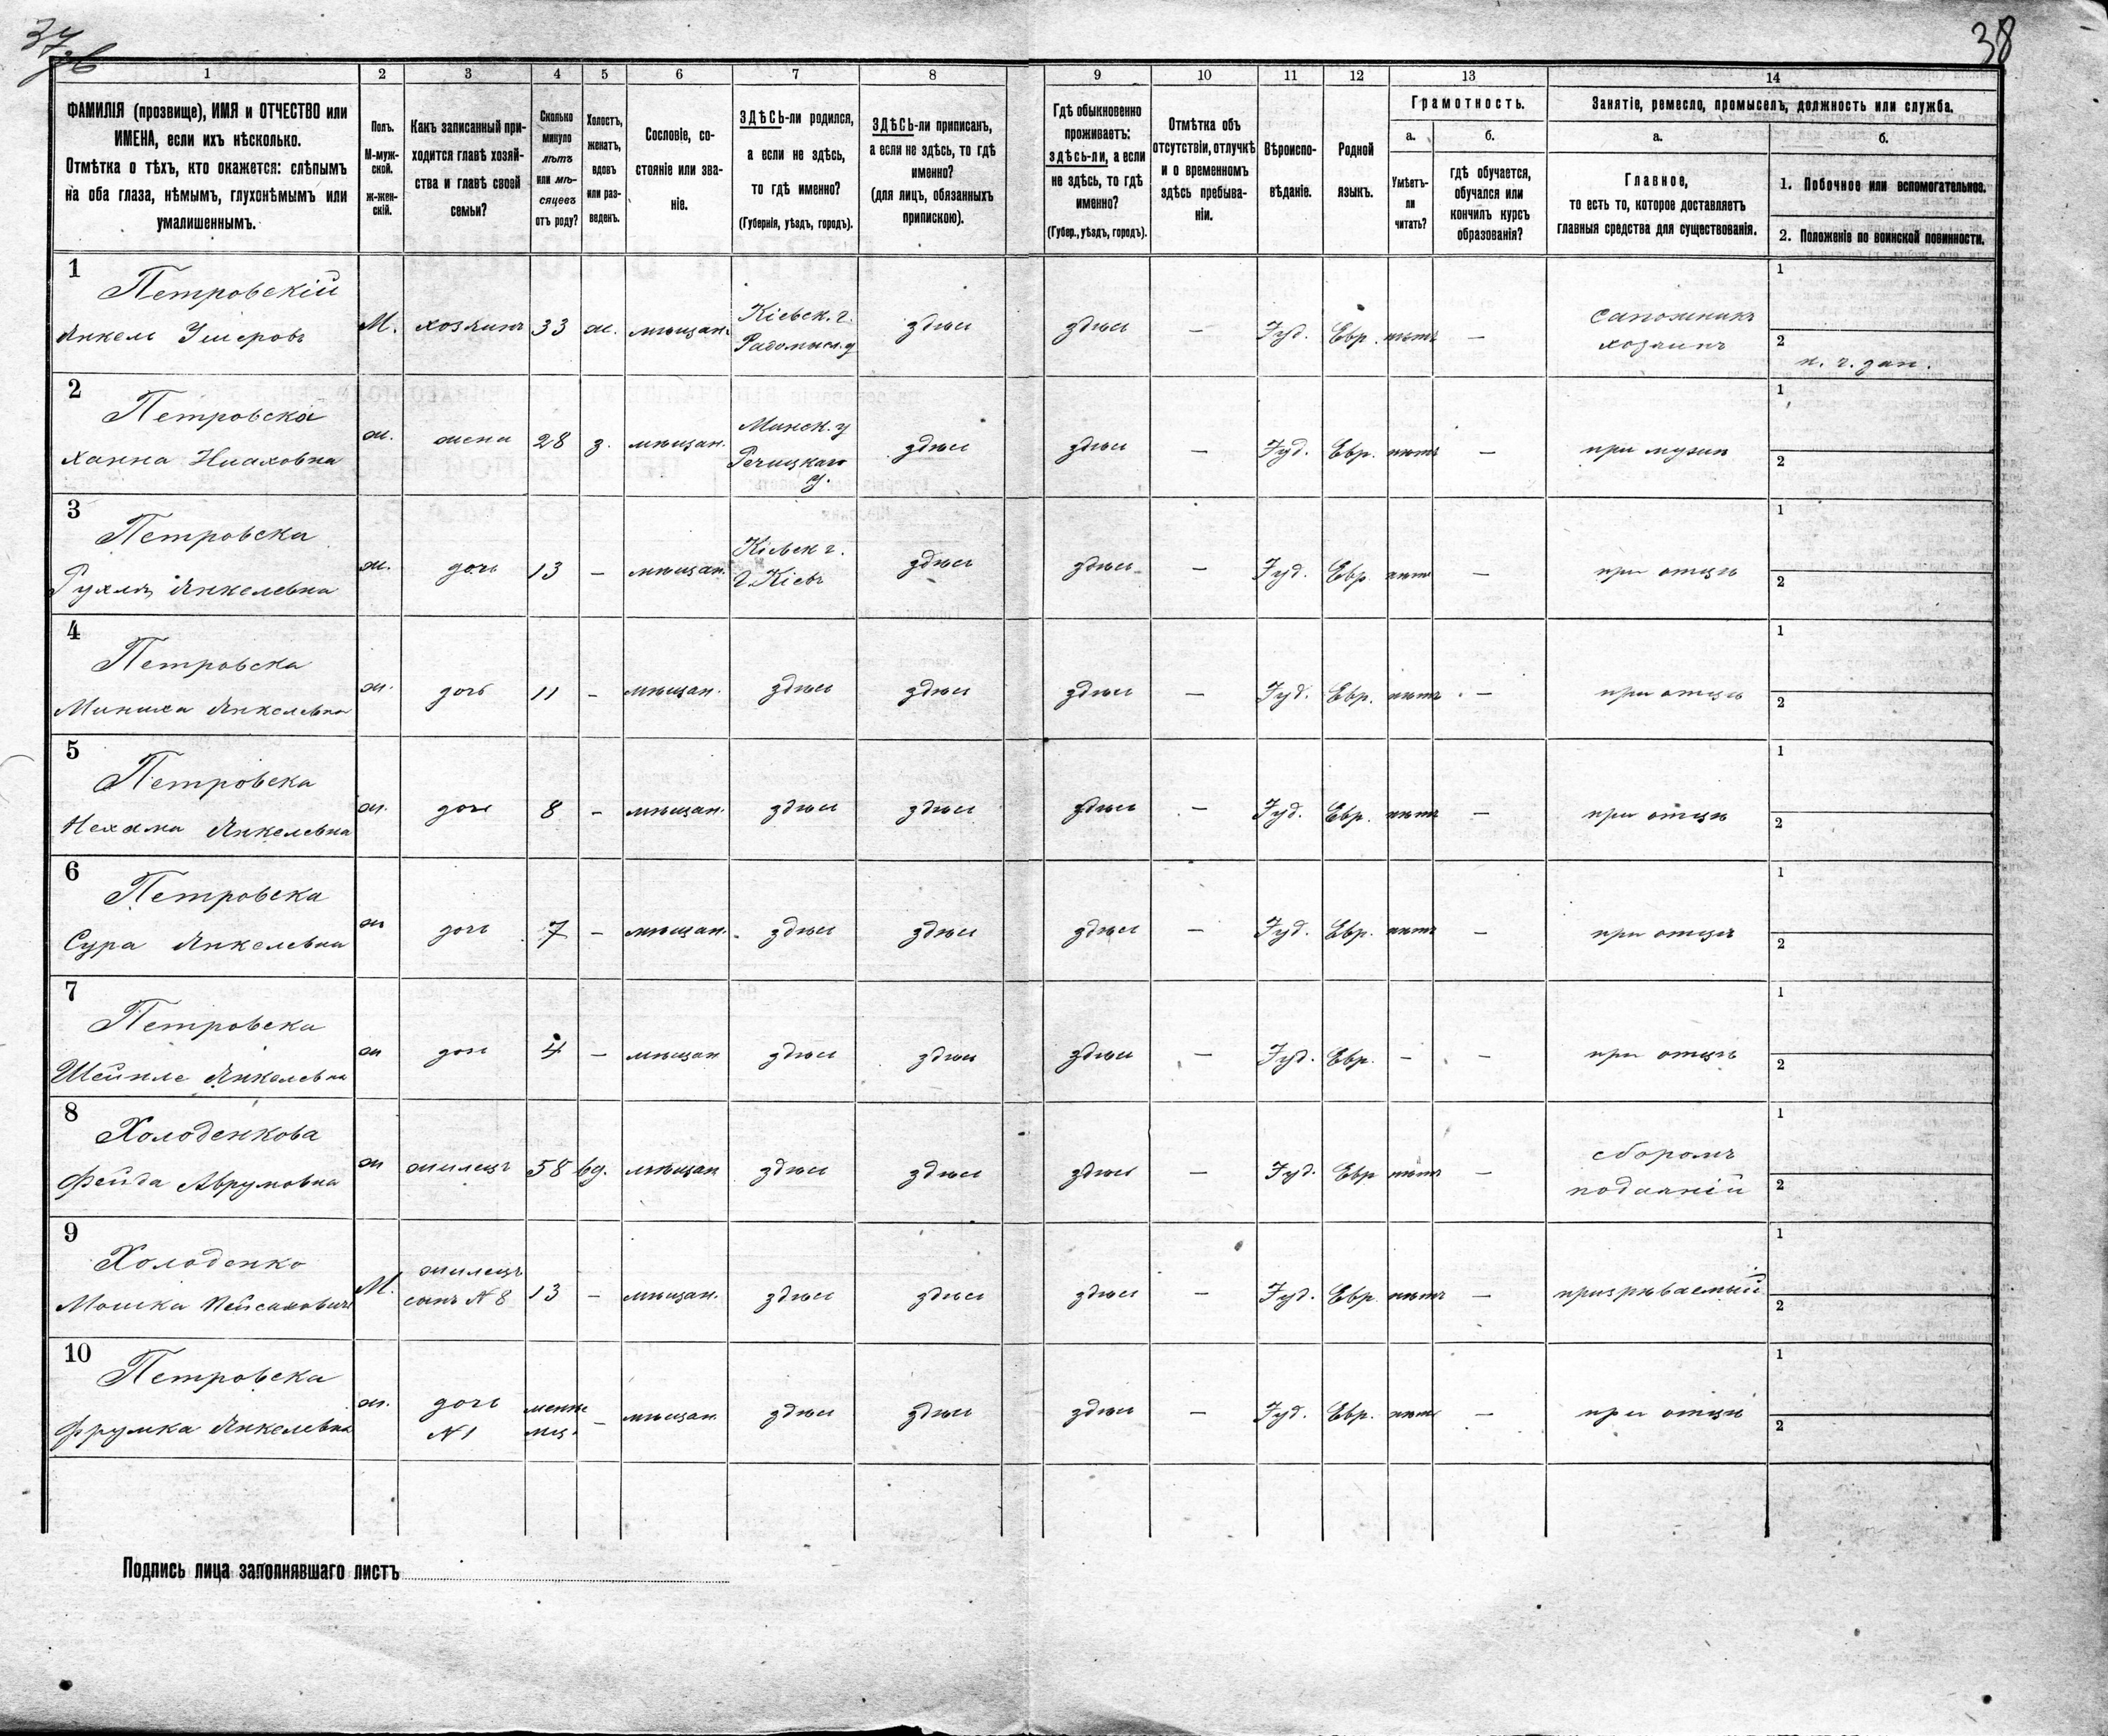 37об
38
1 2 3 4 5 6 7 8 9 10 11 12 13 14
ФАМИЛІЯ (прозвище), ИМЯ и ОТЧЕСТВО или
ИМЕНА, если ихъ нѣсколько.
Отмѣтка о тѣхъ, кто окажется: слѣпымъ
на оба глаза, нѣмымъ, глухонѣмымъ или
умалишеннымъ.
Полъ.
М-муж-
ской.
ж-жен-
скій.
Какъ записанный при-
ходится главѣ хозяй-
ства и главѣ своей
семьи?
Сколько
минуло
лѣтъ
или мѣ-
сяцевъ
отъ роду?
Холостъ,
женатъ,
вдовъ
или раз-
веденъ.
Сословіе, со-
стояніе или зва-
ніе.
ЗДѢСЬ-ли родился,
а если не здѣсь,
то гдѣ именно?
(Губернія, уѣздъ, городъ).
ЗДѢСЬ-ли приписанъ,
а если не здѣсь, то гдѣ
именно?
(для лицъ, обязанныхъ
припискою).
Гдѣ обыкновенно
проживаетъ:
здѣсь-ли, а если
не здѣсь, то гдѣ
именно?
(Губер., уѣздъ, городъ).
Отмѣтка объ
отсутствіи, отлучкѣ
и о временномъ
здѣсь пребыва-
ніи.
Вѣроиспо-
вѣданіе.
Родной
языкъ.
Грамотность.
а.
Умѣетъ-
ли
читать?
б.
гдѣ обучается,
обучался или
кончилъ курсъ
образованія?
Занятіе, ремесло, промыселъ, должность или служба.
а.
Главное,
то есть то, которое доставляетъ
главныя средства для существованія.
б.
1. Побочное или вспомогательное.
2. Положеніе по воинской повинности.
1
Петровскій
Янкель Умеровъ
М. хозяинъ 33 ж. мѣщан.
Кіевск. г.
Радомысл. у
здѣсь здѣсь — Іуд. Евр. нѣтъ —
сапожникъ
хозяинъ
1
2
2
Петровска
Ханна
ж. жена 28 з. мѣщан.
Минск. у
Речицкаго
у.
здѣсь здѣсь — Іуд. Евр. нѣтъ — при мужѣ
1
2
3
Петровска
Рухля Янкелевна
ж. дочь 13 — мѣщан.
Кіевск г.
г. Кіевъ
здѣсь здѣсь — Іуд. Евр. нѣтъ — при отцѣ
1
2
4
Петровска
Миниха Янкелевна
ж. дочь 11 — мѣщан. здѣсь здѣсь здѣсь — Іуд. Евр. нѣтъ — при отцѣ
1
2
5
Петровска
Нехама Янкелевна
ж. дочь 8 — мѣщан. здѣсь здѣсь здѣсь — Іуд. Евр. нѣтъ — при отцѣ
1
2
6
Петровска
Сура Янкелевна
ж дочь 7 — мѣщан. здѣсь здѣсь здѣсь — Іуд. Евр. нѣтъ — при отцѣ
1
2
7
Петровска
Шейнле Янкелевна
ж дочь 4 — мѣщан здѣсь здѣсь здѣсь — Іуд. Евр. — — при отцѣ
1
2
8
Холоденкова
Фейда Аврумовна
ж жилецъ 58 вд. мѣщан здѣсь здѣсь здѣсь — Іуд. Евр нѣтъ —
сборомъ
подаяній
1
2
9
Холоденко
Мошка Пейсаховичъ
М.
жилецъ
сынъ N 8
13 — мѣщан. здѣсь здѣсь здѣсь — Іуд. Евр. нѣтъ — призрѣваемый
1
2
10
Петровска
Фрумка Янкелевна
ж.
дочь
N 1
менѣе
мѣс.
— мѣщан. здѣсь здѣсь здѣсь — Іуд. Евр. нѣтъ — при отцѣ
1
2
Подпись лица заполнявшаго листъ